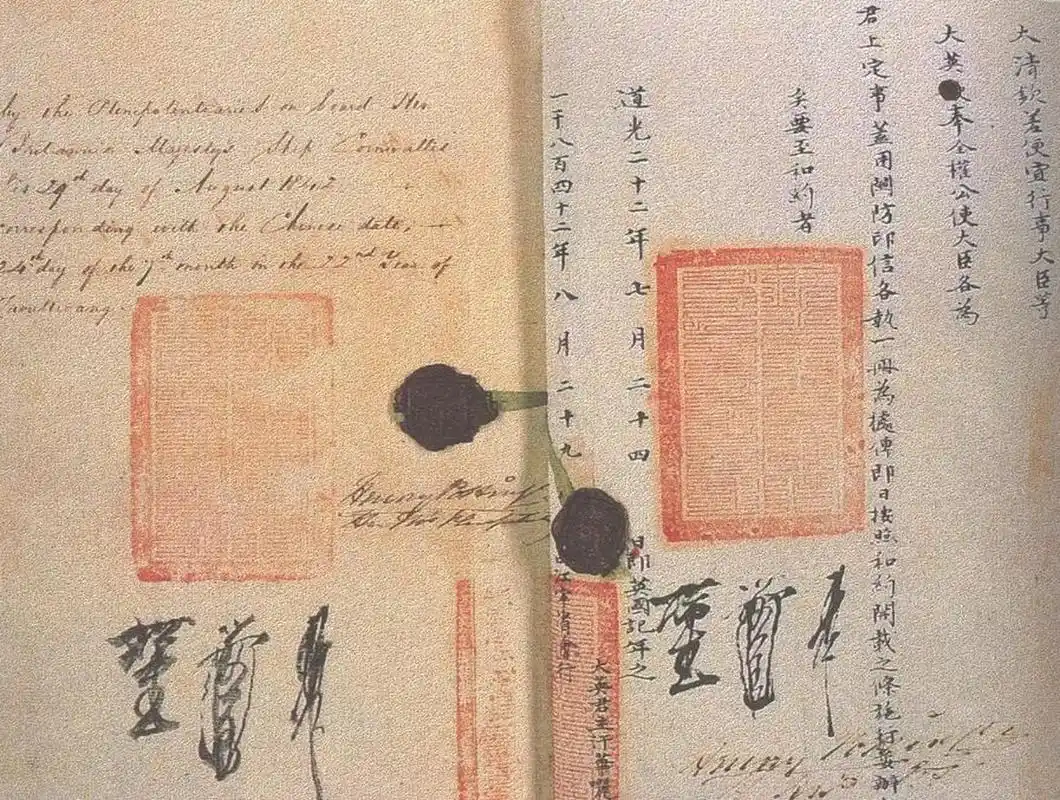 by the Plenipotentiaries on board Her
Britannic Majesty's Ship Cornwallis
this 29th day of August 1842
corresponding with the Chinese date,
24th day of the 7th month in the 22nd Year of
Taoukwang
Henry Pottinger
大清欽差便宜行事大臣等
大英 奉全權公使大臣各為
君上定事蓋用關防印信各執一冊為據俾即日按照和約開載之條施行妥辦
矣要至和約者
道光二十二年七月二十四日即英國記年之
一千八百四十二年八月二十九 江寧省會行
大英君主汗華囇
Henry Pottinger